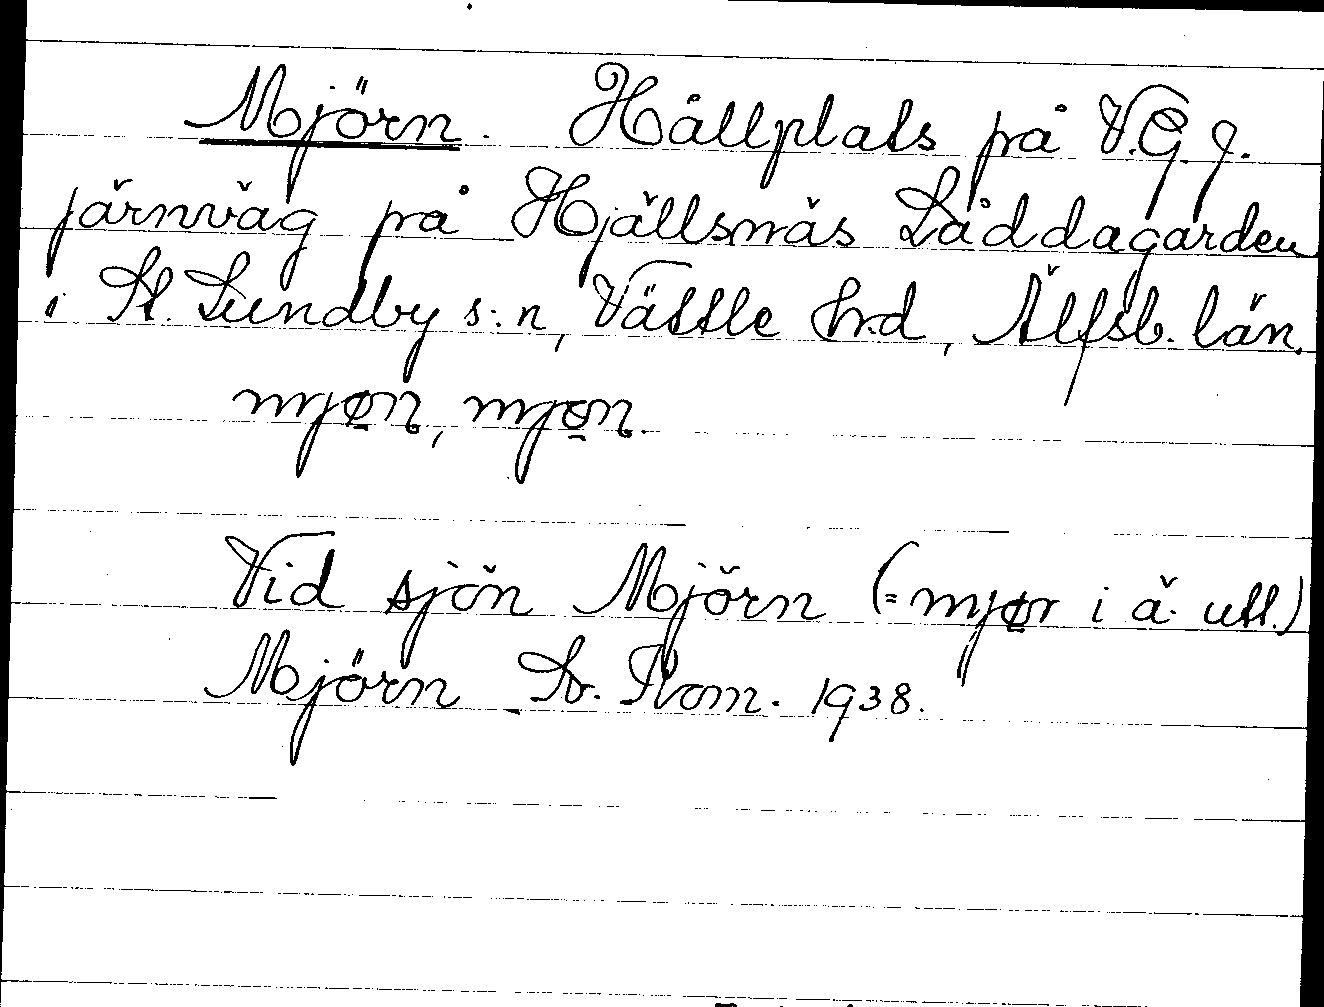 Mjörn. Hållplats på V.G.J.
järnväg på Hjällsnäs Låddagården
i St. Lundby s:n, Vättle hrd, Älfsb. län.
mjøn, mjøn.
Vid sjön Mjörn (=mjør i ä. utt.)
Mjörn Sv. Kom. 1938.